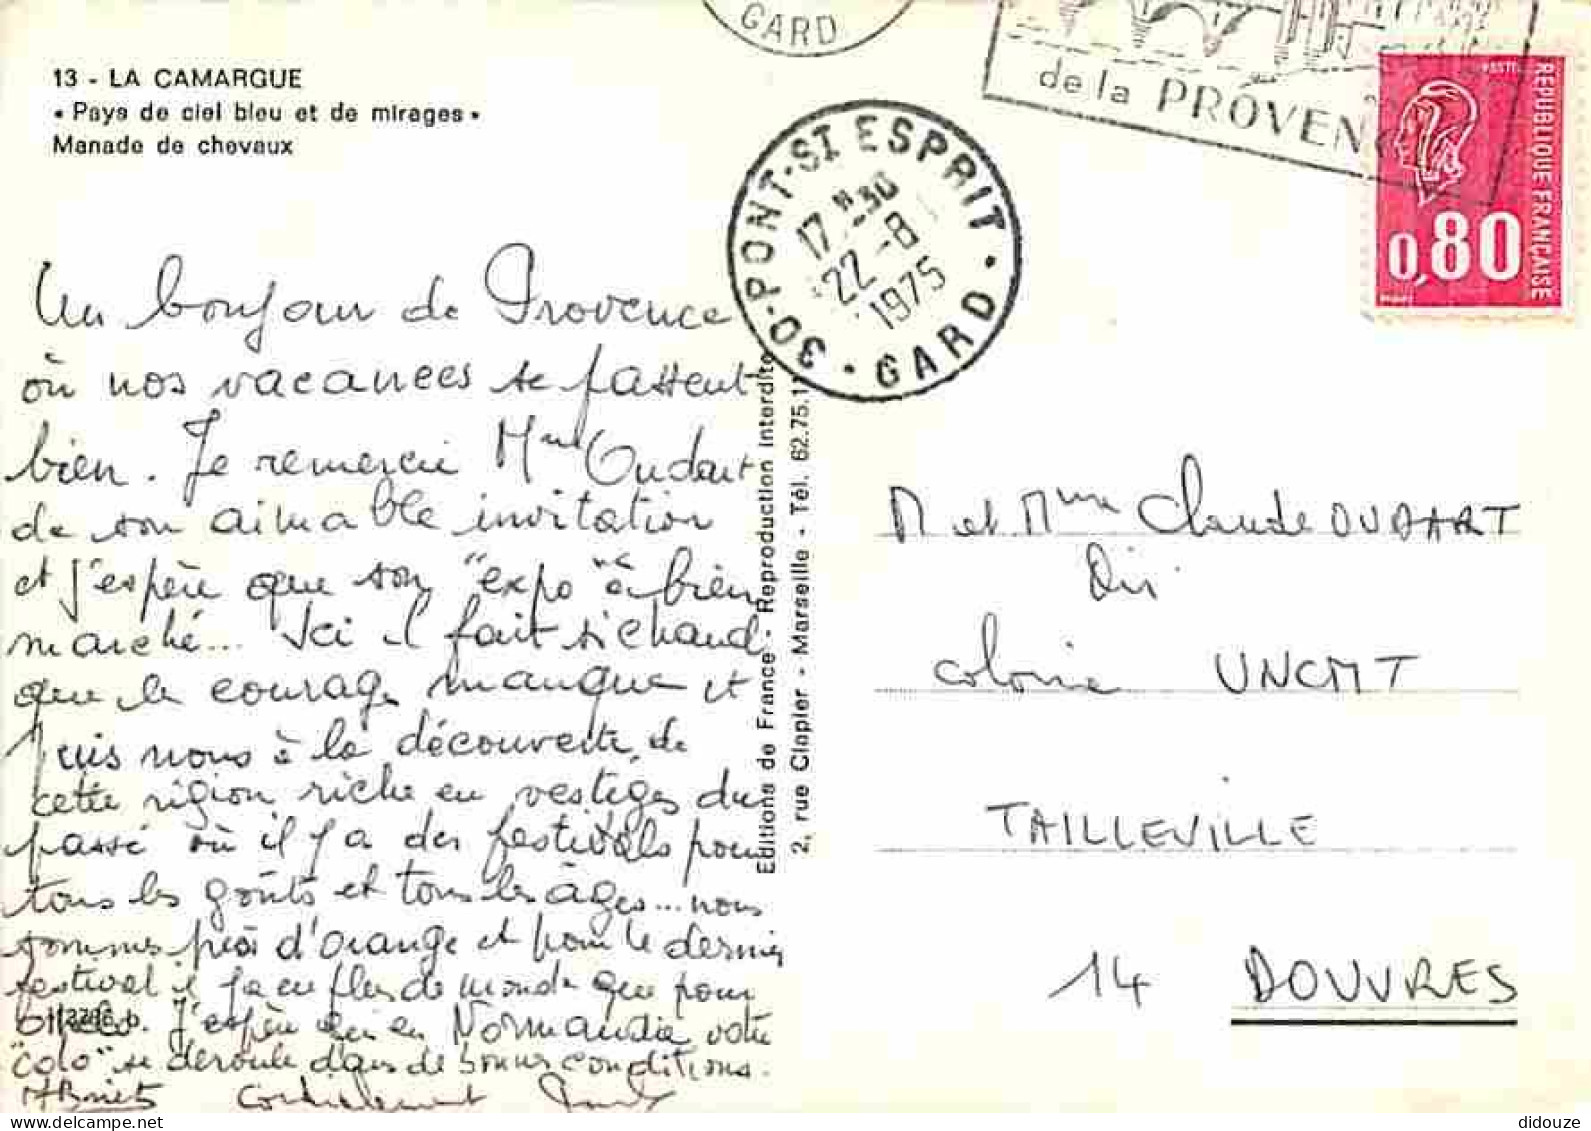 GARD
de la PROVENCE
13 - LA CAMARGUE
« Pays de ciel bleu et de mirages »
Manade de chevaux
30 - PONT-ST ESPRIT
17 H 30
22 -8
1975
GARD
POSTES
REPUBLIQUE FRANÇAISE
0,80
Un bonjour de Provence
où nos vacances se passent
bien. Je remercie Mme Oudart
de son aimable invitation
et j'espère que son "expo" a bien
marché... Ici il fait si chaud
que le courage manque et
puis nous à la découverte de
cette région riche en vestiges du
passé où il y a des festivals pour
tous les goûts et tous les âges... nous
sommes près d'Orange et pour le dernier
festival il y a eu plus de monde que pour
J'espère qu'en Normandie votre
"colo" se déroule dans de bonnes conditions.
Cordialement
Editions de France - Reproduction Interdite
2, rue Clapier - Marseille - Tél. 62.75.1
M et Mme Claude OUDART
Dir
Colonie UNCMT
TAILLEVILLE
14 DOUVRES
didouze